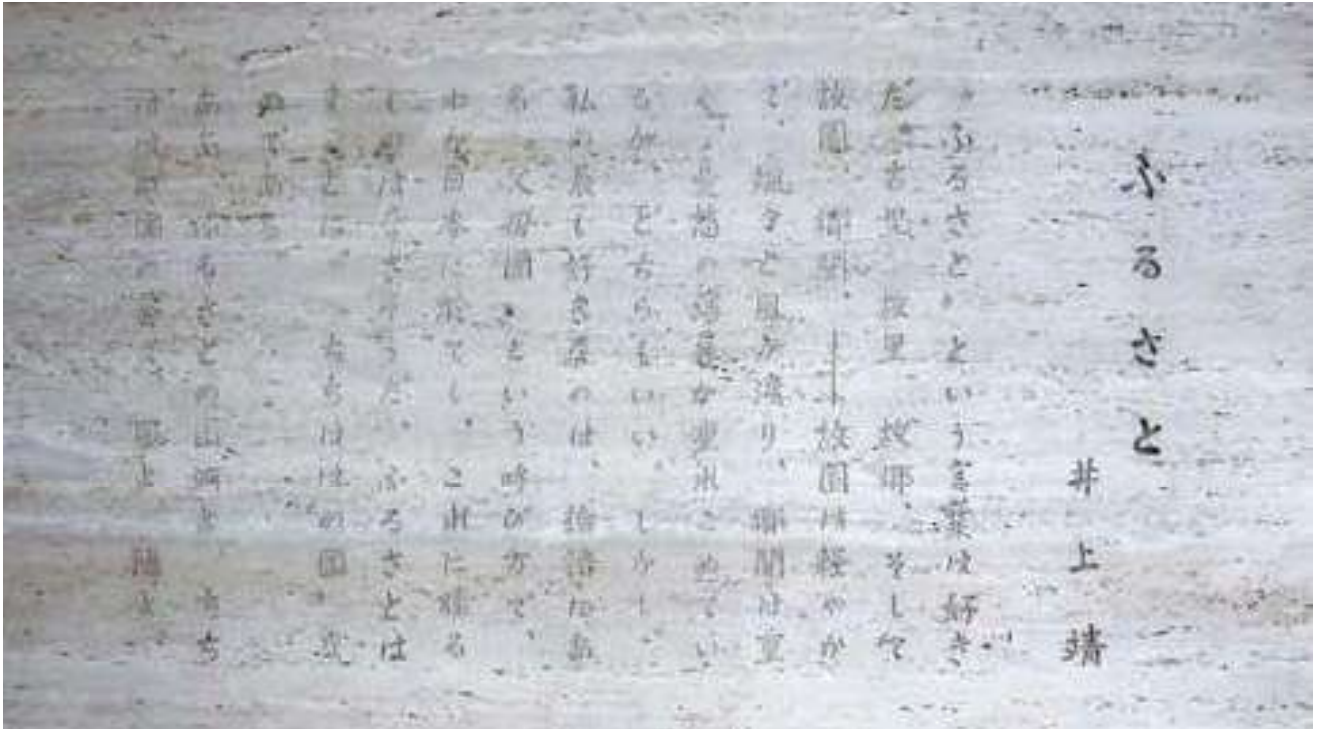 ふるさと
井上靖
〝ふるさと〟という言葉は好き
だ。古里、故里、故郷、そして
故園、郷関、――故園は軽やか
で、颯々と風が渡り、郷関は重
く、憂愁の薄暮が垂れこめてい
るが、どちらもいい。しかし、
私の最も好きなのは、論語にあ
る〝父母国〟という呼び方で、
わが日本に於ても、これに勝る
はなさそうだ。ふるさとは
まことに、〝ちちははの国〟
のである。
ああ、ふるさとの山河よ、ちち
ははの国の雲よ、風よ、陽よ。